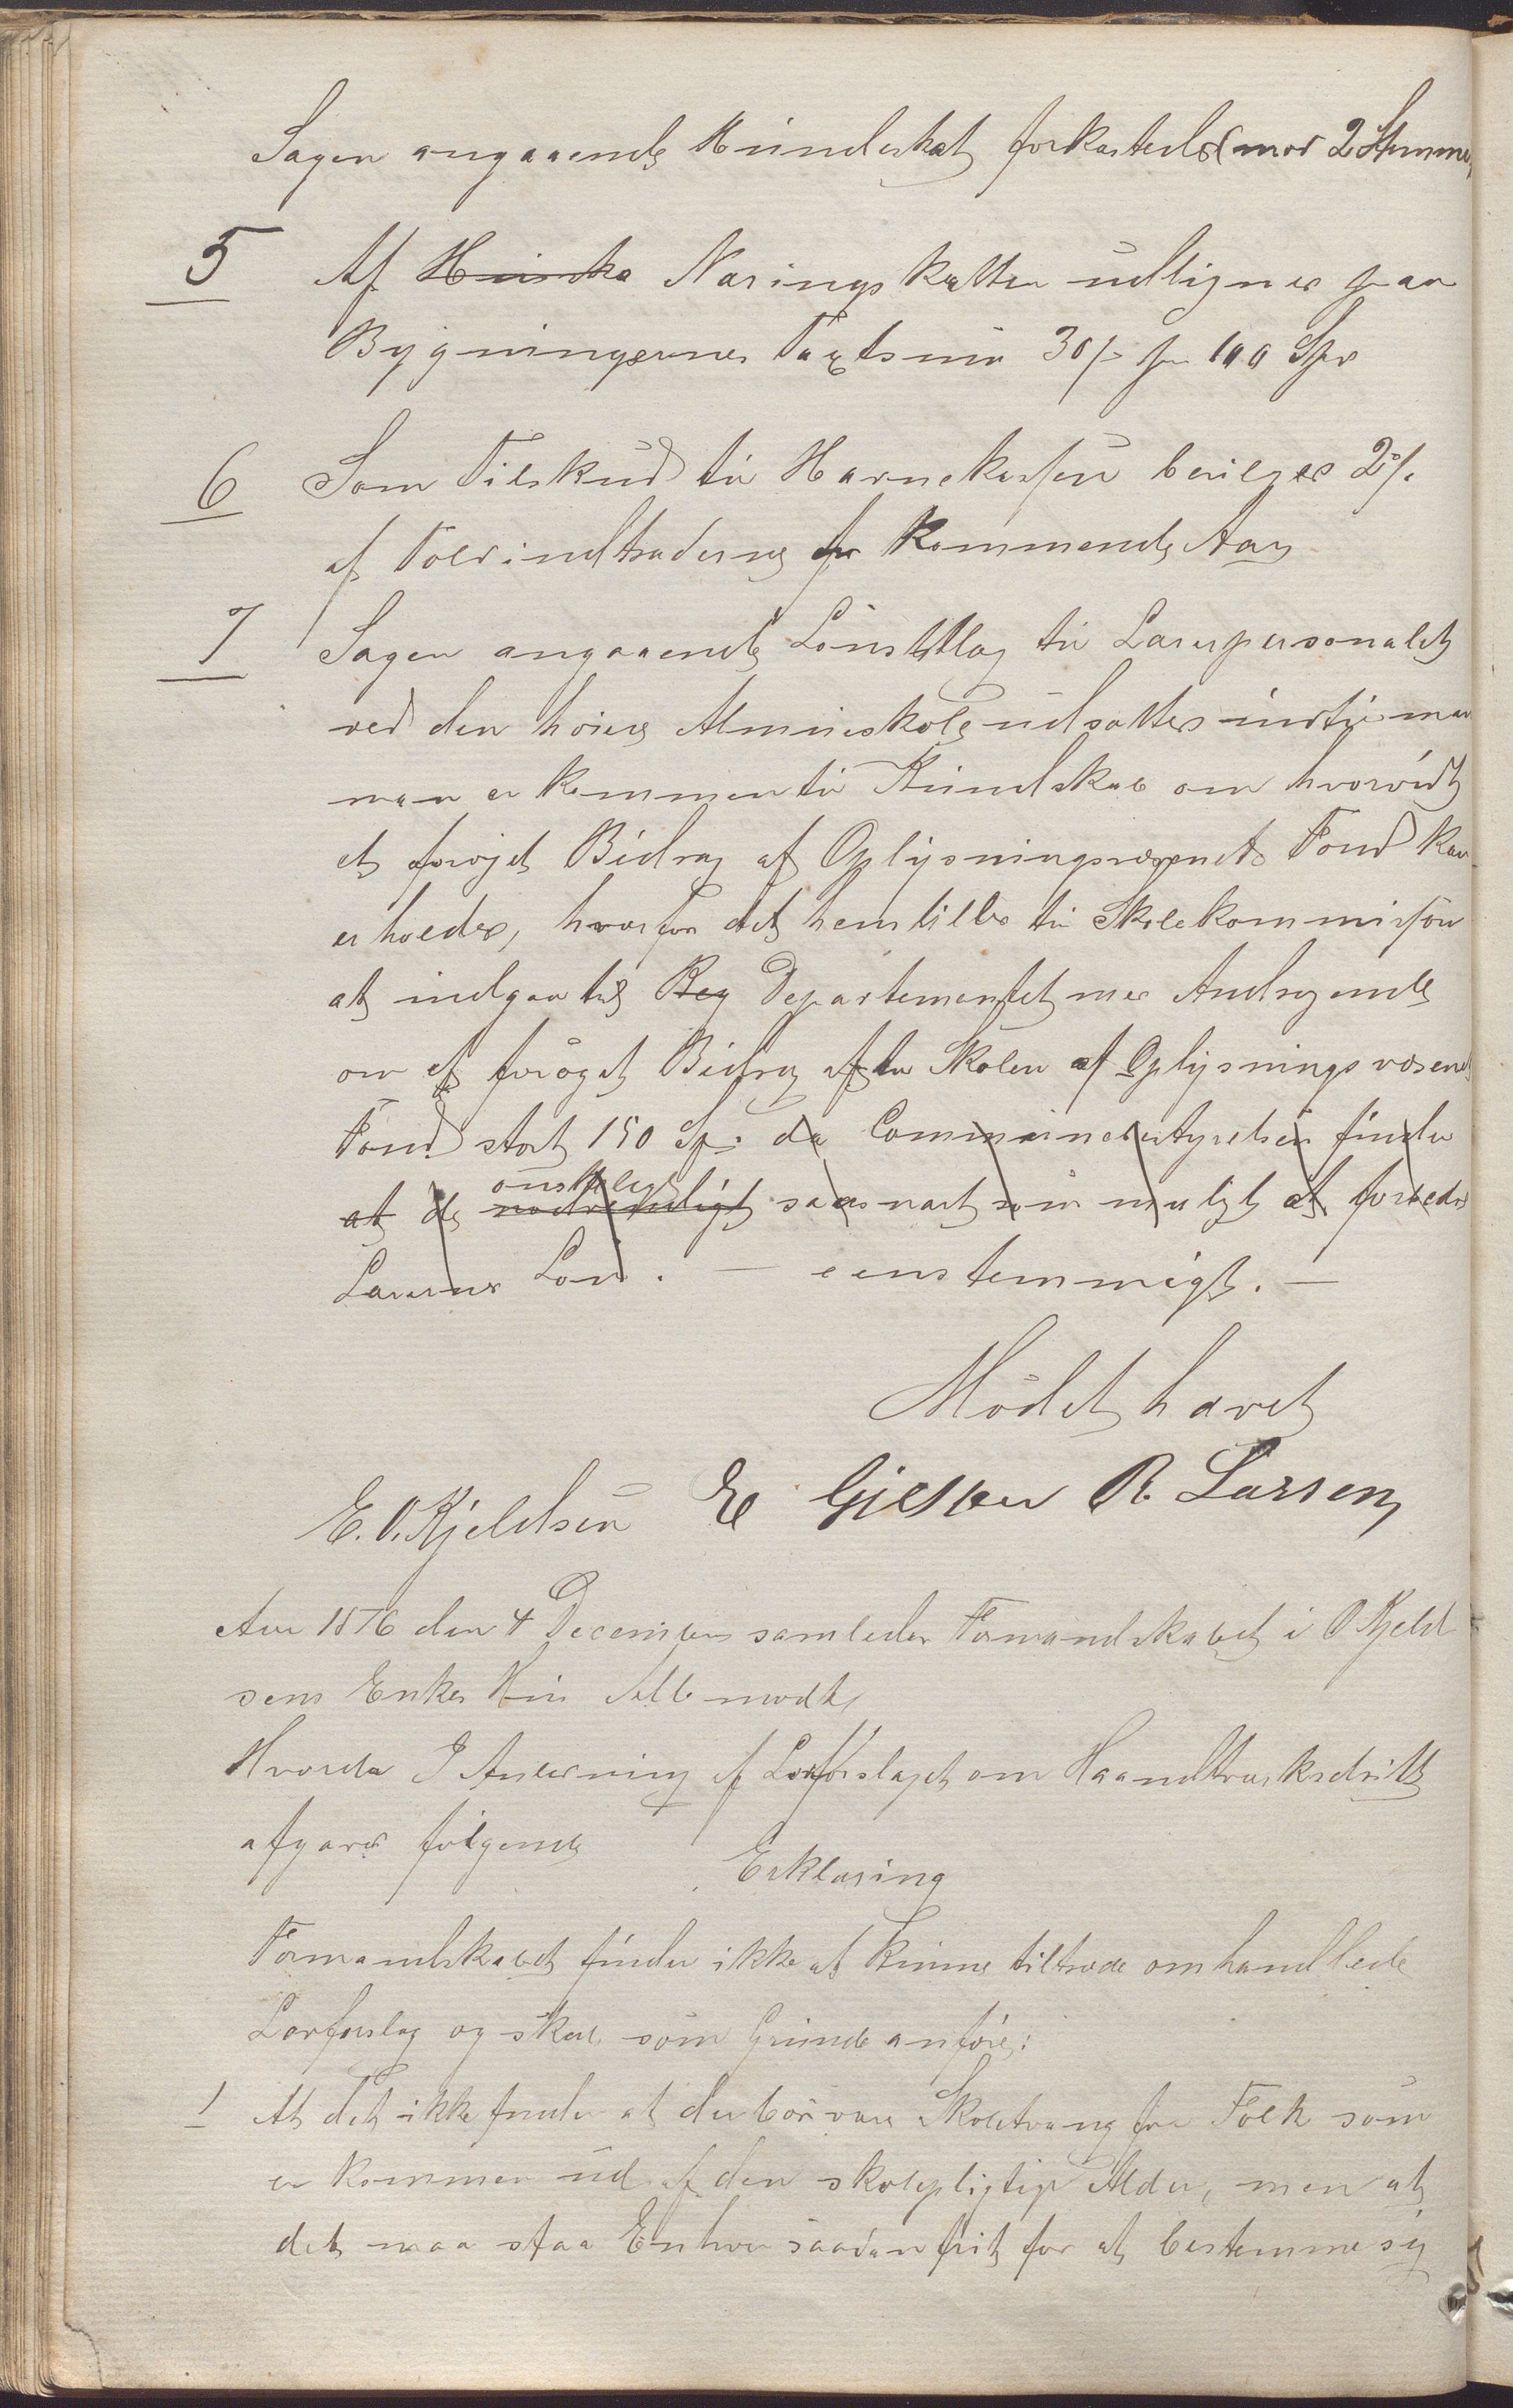 Sagen angaaende Hundeskat forkastedes (mod 2 Stemmer
5 Af Huuska Næringskatten udlignes paa
Bygningernes Taxtsum 30 ß pr 100 Spd
6 Som Tilskud til Havnekassen bevilges 2 %
af Toldindtræderne for kommende Aar
7 Sagen angaaende Lönstillæg til Lærerpersonalet
ved den höiere Almueskole udsættes indtil man
man er kommen til Kundskab om hvorvidt
et forøjet Bidrag af Oplysningsvæsenets Fond kan
erholdes, hvorfor det henstilles til Skolekommissjon
at indgaa til Reg Departementet med Andragende
om et foröget Bidrag til Skolen af Oplysningsvæsenets
Fond stort 150 Sp. da Communebestyrelsen finder
önskeligt
at de nødvendigt saasnart som muligt at forbedre
Lærernes Lön. — eenstemmigt. —
Mödet hævet
E. O. Kjeldsen E Gjelsten R. Larsen
Aar 1876 den 4 December samledes Formandskabet i O Kjeld
sens Enkes Hus Alle mødt,
Hvorda I Anledning af Lovforslaget om Haandtværksdrift
afgaves fölgende
Erklæring
Formandskabet finder ikke at kunne tiltræde omhandlede
Lovforslag og skal som Grunde anföre:
1 At det ikke finder at der bör være Skoletvang for Folk som
er kommen ud af den skolepligtige Alder, men at
det maa staa Enhver saadan frit for at bestemme sig